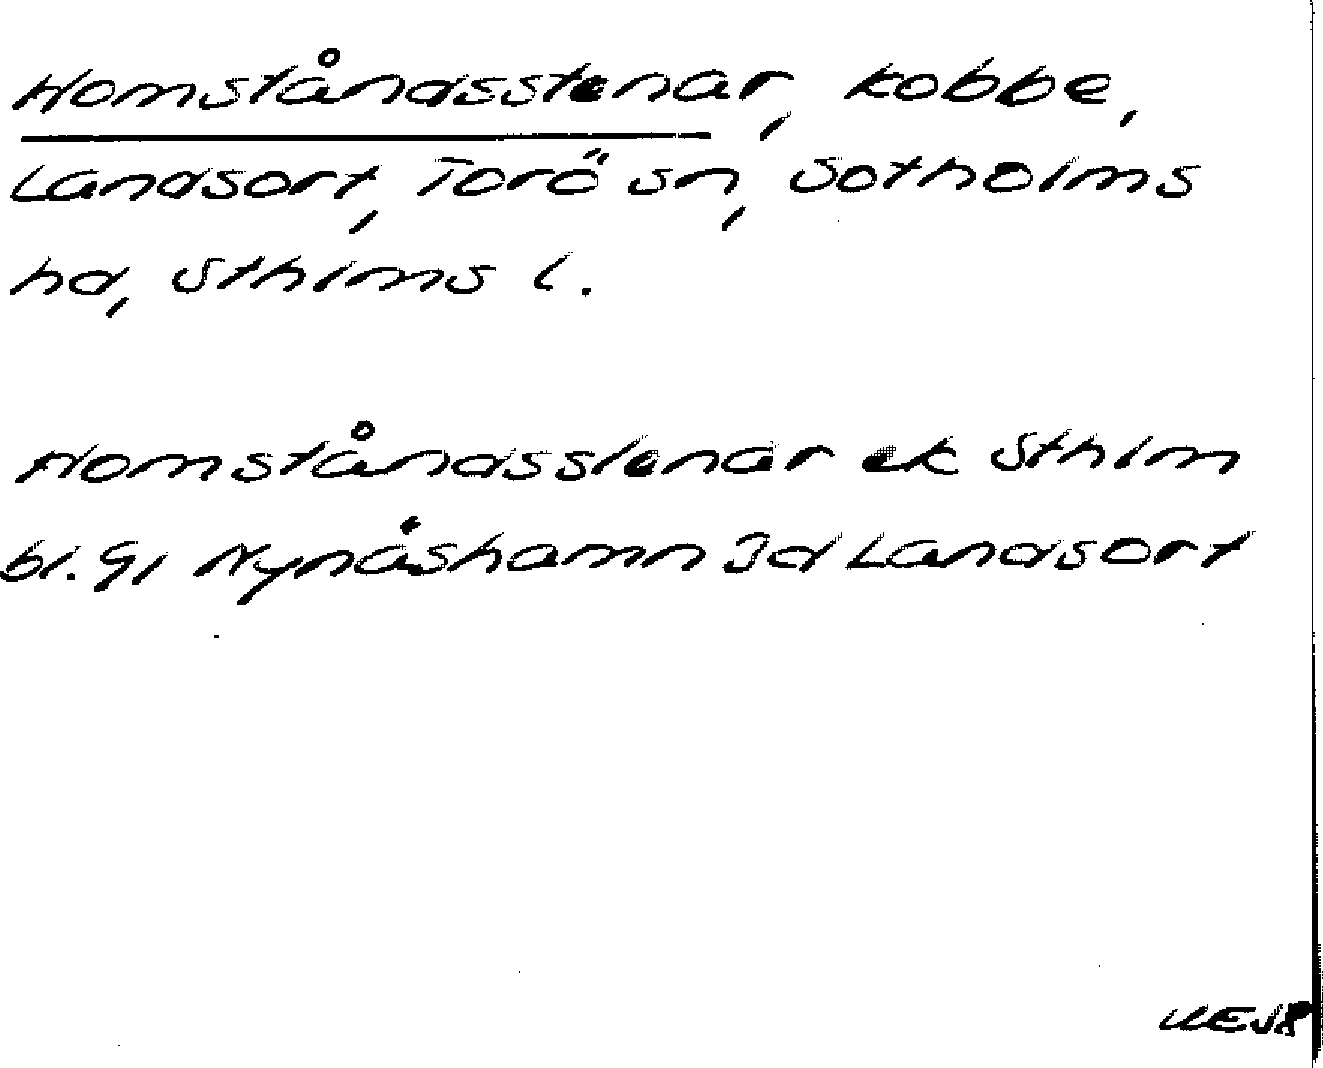 Homståndsstenar, kobbe,
Landsort, Torö sn, Sotholms
hd, Sthlms l.
Homståndsstenar ek Sthlm
bl. 91 Nynäshamn Jd Landsort